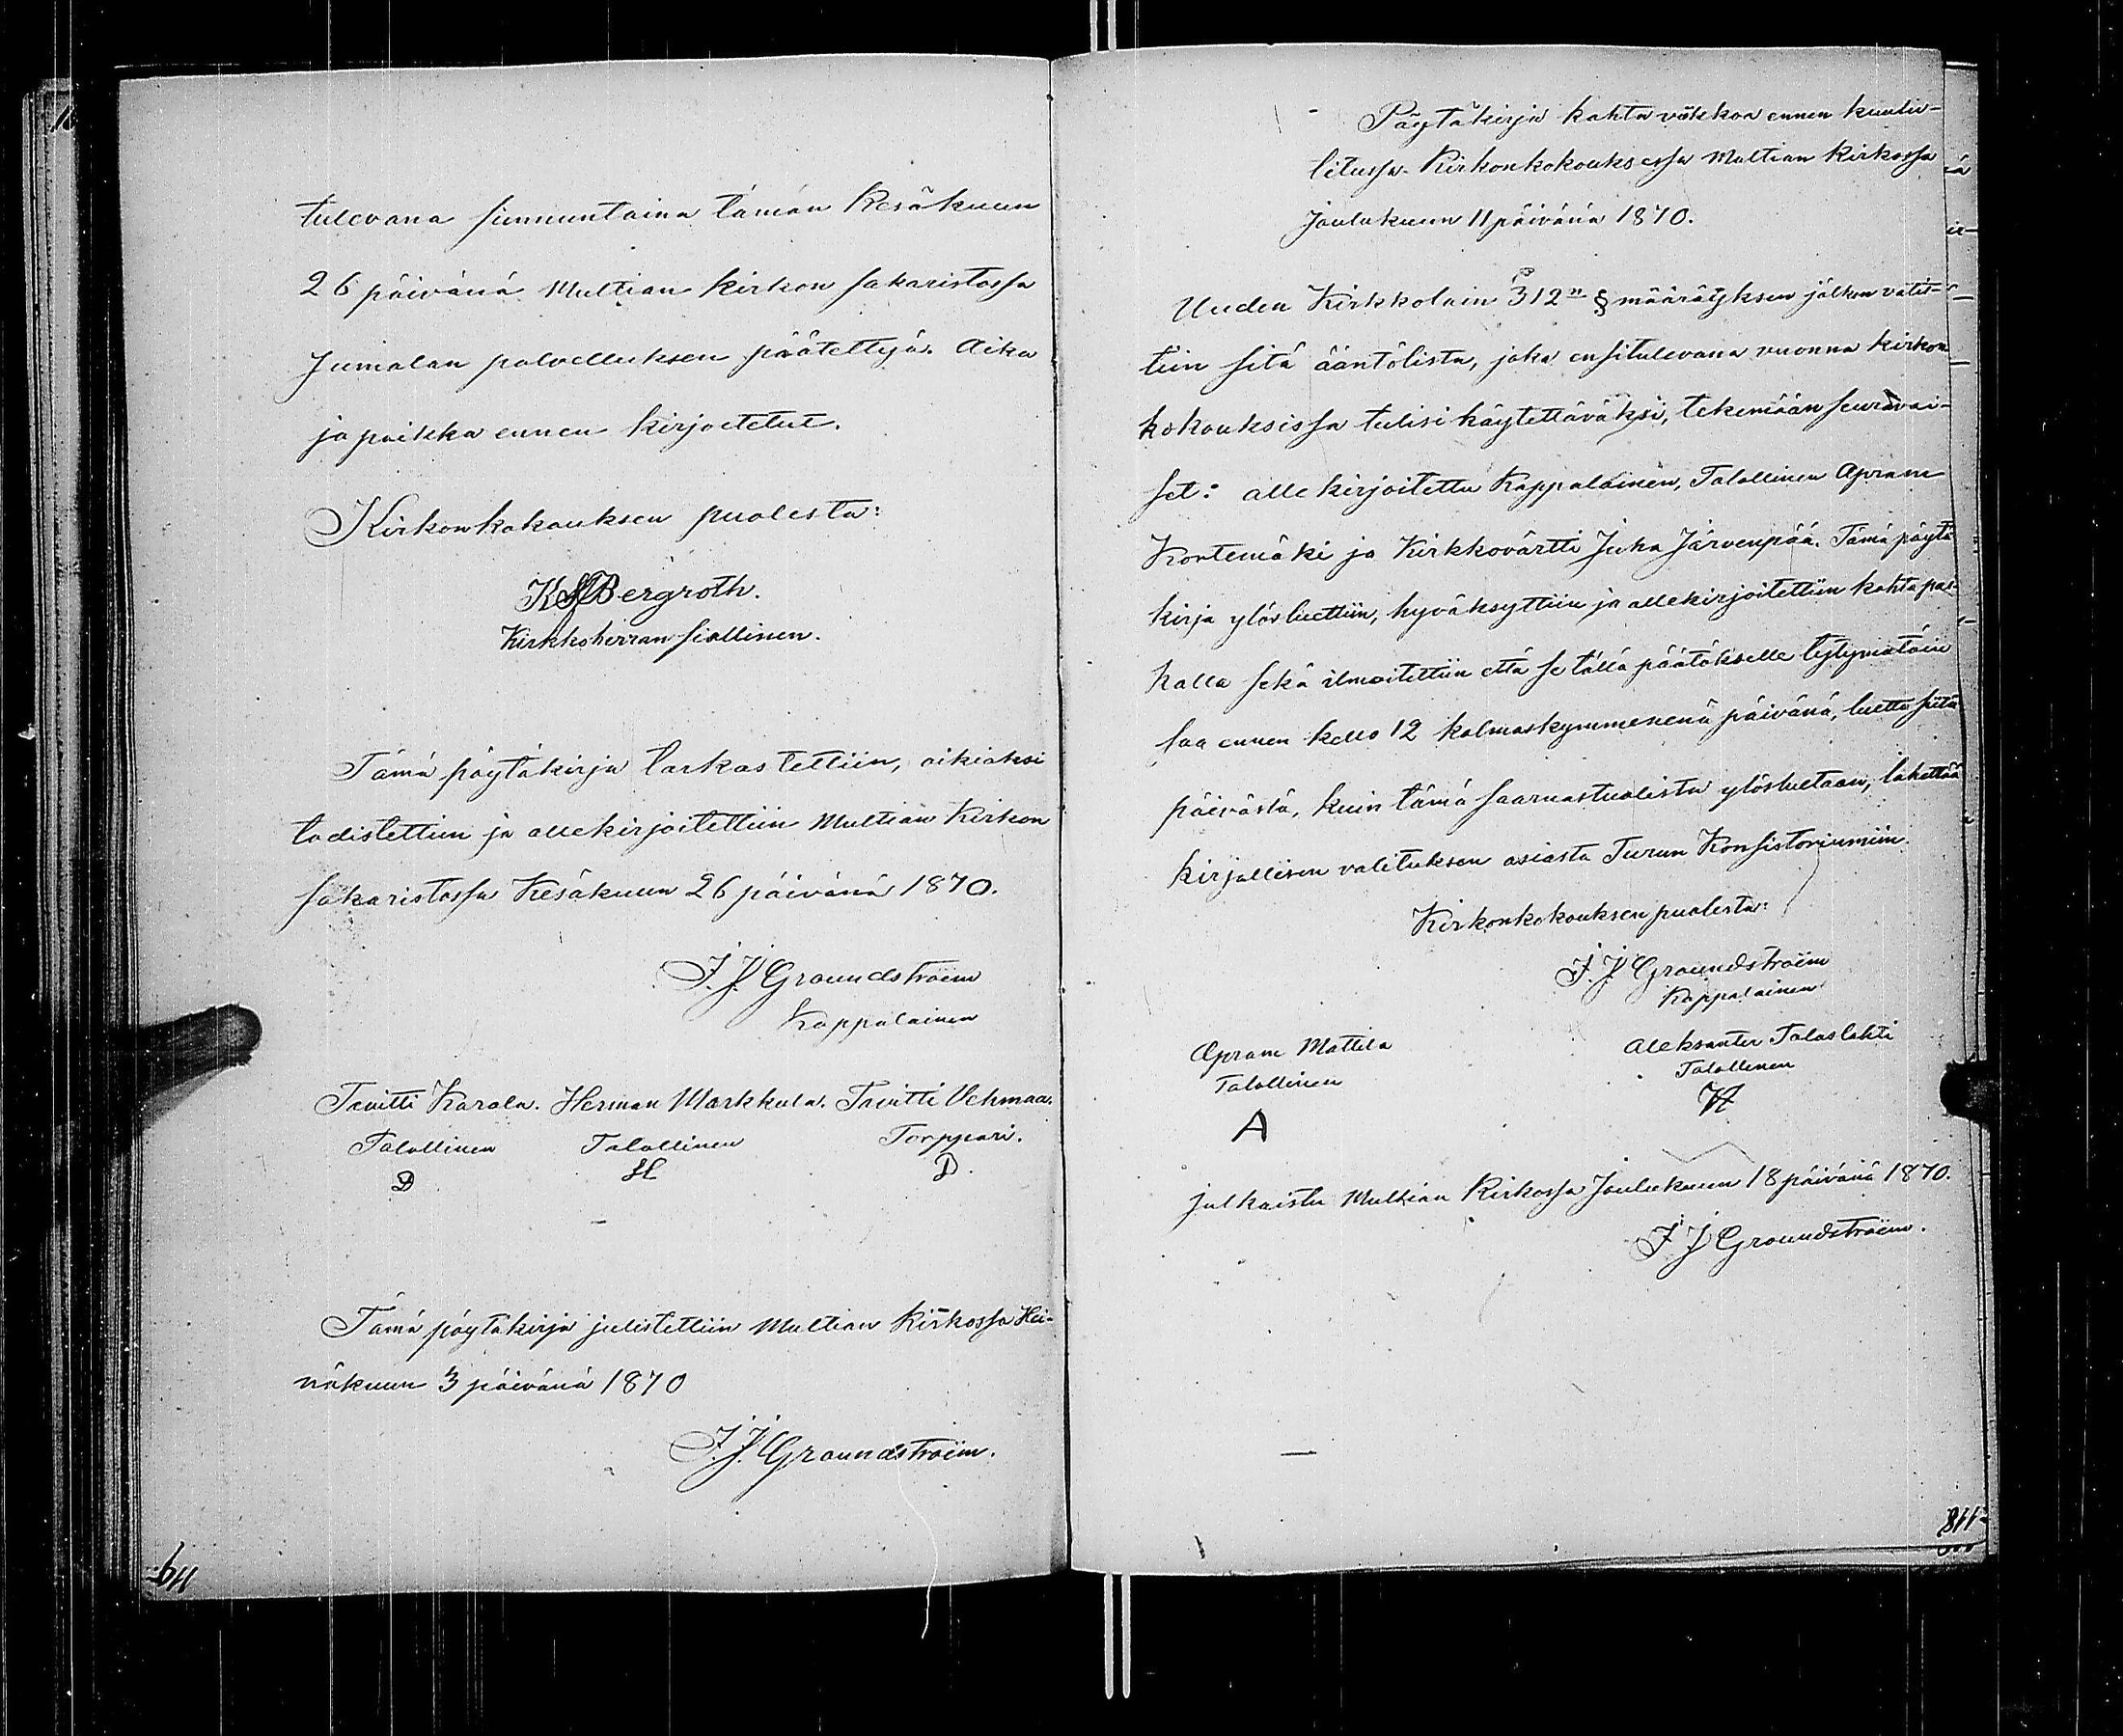 tulevana sunnuntaina tämän Kesäkuun
26 päivänä Multian Kirkon sakaristossa
Jumalan palvelluksen päätettyä. Aika
ja paikka ennen kirjoitetut.
Kirkonkokouksen puolesta:
K Bergroth.
Kirkkoherran siallinen.
Tämä pöytäkirja tarkastettiin, oikiaksi
todistettiin ja allekirjoitettiin Multian Kirkon
sakaristossa Kesäkuun 26 päivänä 1870.
J. J. Groundstroëm
Kappalainen
Tavitti Karala. Herman Markkula. Tavitti Vehmaa.
Talollinen Talollinen Torppari.
D H D.
Tämä pöytäkirja julistettiin Multian Kirkossa Hei-
näkuun 3 päivänä 1870
J. J. Groundstroëm.
119
Pöytäkirja kahta viikkoa ennen kuulu-
litussa Kirkonkokouksessa Multian Kirkossa
Joulukuun 11 päivänä 1870.
Uuden Kirkkolain 312n § määräyksen jälken valit-
tiin sitä ääntölista, joka ensitulevana vuonna kirkon
kokouksissa tulisi käytettäväksi, tekemään seuraavai-
set: allekirjoitettu Kappalainen, Talollinen Apram
Kortemäki ja Kirkkovärtti Juha Järvenpää. Tämä pöytä
kirja ylösluettiin, hyväksyttiin ja allekirjoitettiin kohta pai-
kalla sekä ilmoitettiin että se tällä päätökselle tytymätöin
saa ennen kello 12 kolmaskymmenenä päivänä, luettu siitä
päivästä, kuin tämä saarnastuolista ylösluetaan, lähettää
kirjallisen valituksen asiasta Turun Konsistoriumiin.
Kirkonkokouksen puolesta:
J. J. Groundstroëm
Kappalainen
Apram Mattila Aleksanter Talaslahti
Talollinen Talollinen
A
Julkaistu Multian Kirkossa Joulukuun 18 päivänä 1870.
J J Groundstroëm.
118